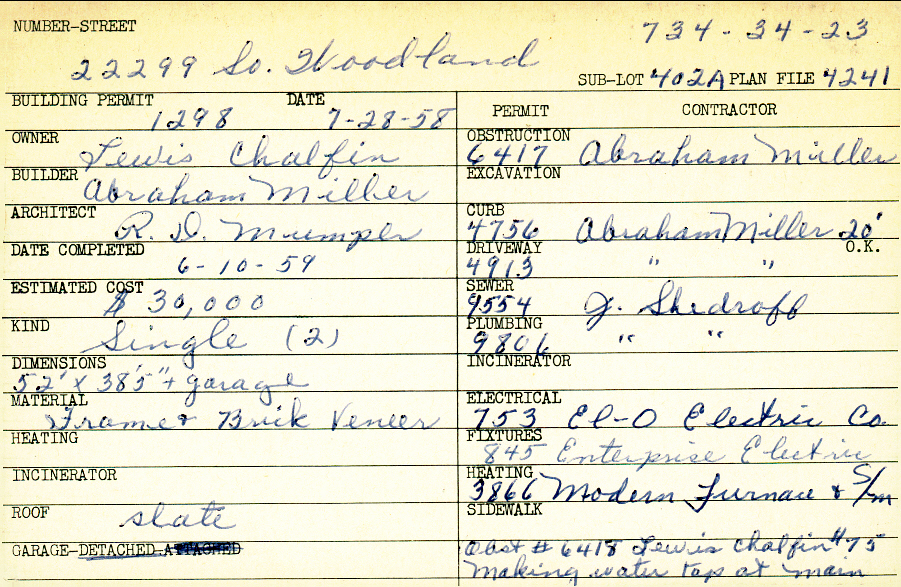 NUMBER-STREET 734-34-23
22299 So. Woodland
SUB-LOT 402A PLAN FILE 4241
BUILDING PERMIT DATE PERMIT CONTRACTOR
1298 7-28-58
OWNER Lewis Chalfin
OBSTRUCTION 6417 Abraham Miller
BUILDER Abraham Miller
EXCAVATION
ARCHITECT R. D. Mumper
CURB 4756 Abraham Miller 20' O.K.
DATE COMPLETED 6-10-59
DRIVEWAY 4913 " "
ESTIMATED COST $ 30,000
SEWER 9554 J. Shedroff
KIND Single (2)
PLUMBING 9806 " "
DIMENSIONS 52' x 38'5" + garage
INCINERATOR
MATERIAL Frame & Brick Veneer
ELECTRICAL 753 El-O Electric Co.
HEATING
FIXTURES 845 Enterprise Electric
INCINERATOR
HEATING 3866 Modern Furnace & S/m
ROOF slate
SIDEWALK
GARAGE-DETACHED-ATTACHED
Obst # 6418 Lewis Chalfin #75
Making water tap at main